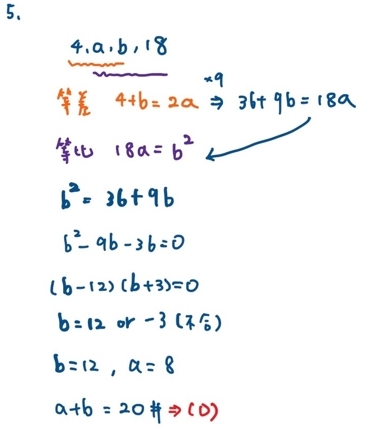 5.
4, a, b, 18
等差 4+b=2a ⇒ 36+9b=18a
×9
等比 18a=b²
b²=36+9b
b²-9b-36=0
(b-12)(b+3)=0
b=12 or -3 (不合)
b=12, a=8
a+b=20# ⇒(D)